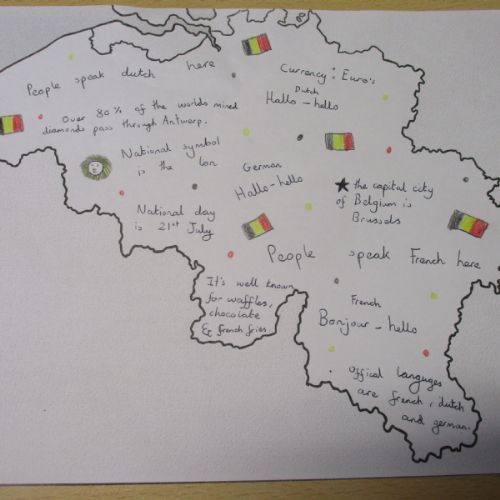 People speak dutch here
Currency: Euro's
Dutch
Hallo - hello
Over 80% of the worlds mined
diamonds pass through Antwerp.
National symbol
is the lion
German
Hallo - hello
the capital city
of Belgium is
Brussels
National day
is 21st July
People speak French here
It's well known
for waffles,
chocolate
& french fries.
French
Bonjour - hello
. offical languges
are french, dutch
and german.